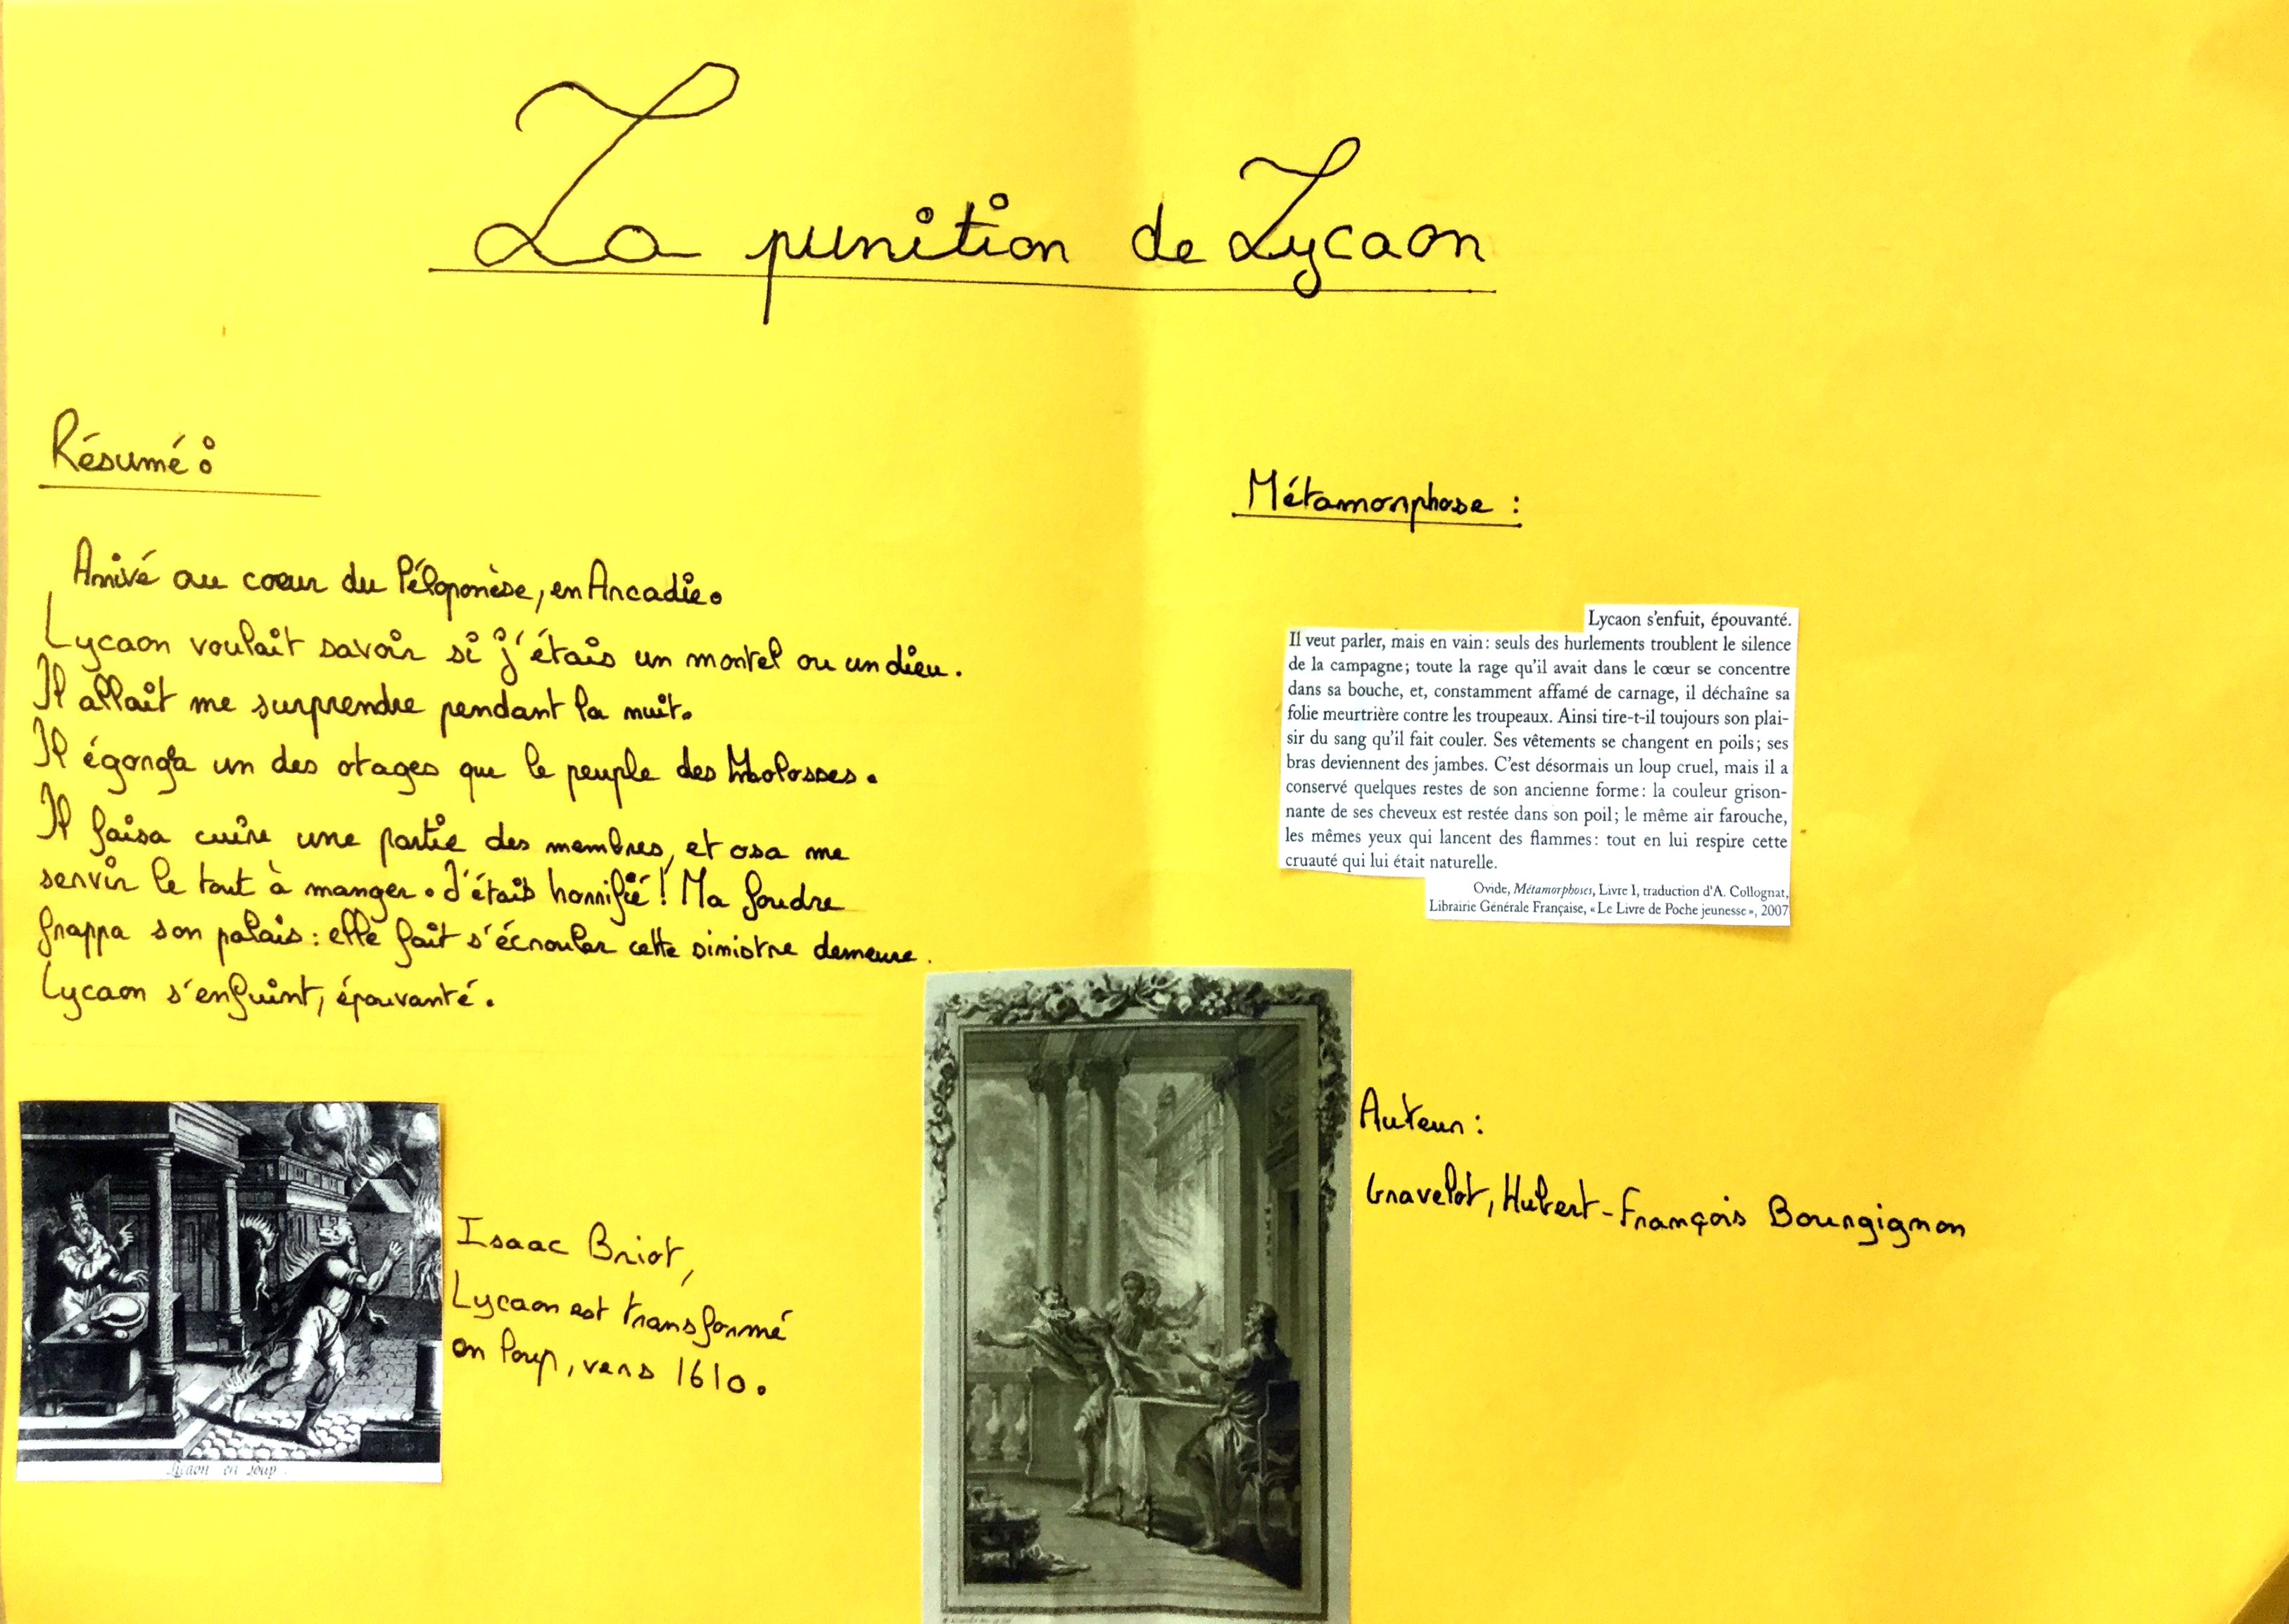 La punition de Lycaon
Résumé :
Arrivé au coeur du Péloponèse, en Arcadie.
Lycaon voulait savoir si j'étais un mortel ou un dieu.
Il allait me surprendre pendant la nuit.
Il égorga un des otages que le peuple des Molosses.
Il faisa cuire une partie des membres, et osa me
servir le tout à manger. J'étais horrifié ! Ma foudre
frappa son palais : elle fait s'écrouler cette sinistre demeure.
Lycaon s'enfuint, épouvanté.
Métamorphose :
Lycaon s'enfuit, épouvanté.
Il veut parler, mais en vain : seuls des hurlements troublent le silence
de la campagne ; toute la rage qu'il avait dans le cœur se concentre
dans sa bouche, et, constamment affamé de carnage, il déchaîne sa
folie meurtrière contre les troupeaux. Ainsi tire-t-il toujours son plai-
sir du sang qu'il fait couler. Ses vêtements se changent en poils ; ses
bras deviennent des jambes. C'est désormais un loup cruel, mais il a
conservé quelques restes de son ancienne forme : la couleur grison-
nante de ses cheveux est restée dans son poil ; le même air farouche,
les mêmes yeux qui lancent des flammes : tout en lui respire cette
cruauté qui lui était naturelle.
Ovide, Métamorphoses, Livre I, traduction d'A. Collognat,
Librairie Générale Française, « Le Livre de Poche jeunesse », 2007
Lycaon en loup.
Isaac Briot,
Lycaon est transformé
en loup, vers 1610.
Auteur :
Gravelot, Hubert-François Bourgignon